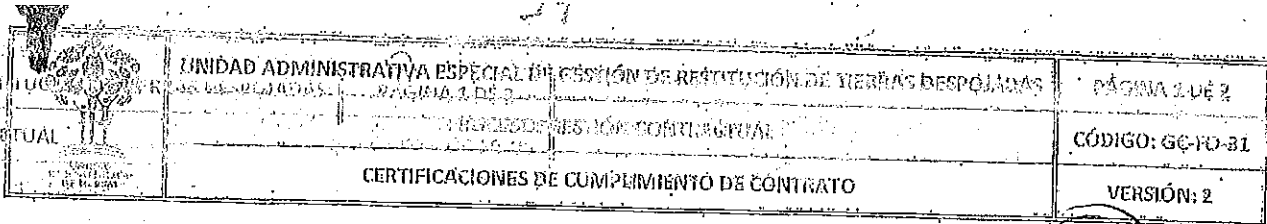 UNIDAD ADMINISTRATIVA ESPECIAL DE GESTIÓN DE RESTITUCIÓN DE TIERRAS DESPOJADAS
PÁGINA 2 DE 2
PROCESO GESTIÓN CONTRACTUAL
CÓDIGO: GC-FO-31
CERTIFICACIONES DE CUMPLIMIENTO DE CONTRATO
VERSIÓN: 2